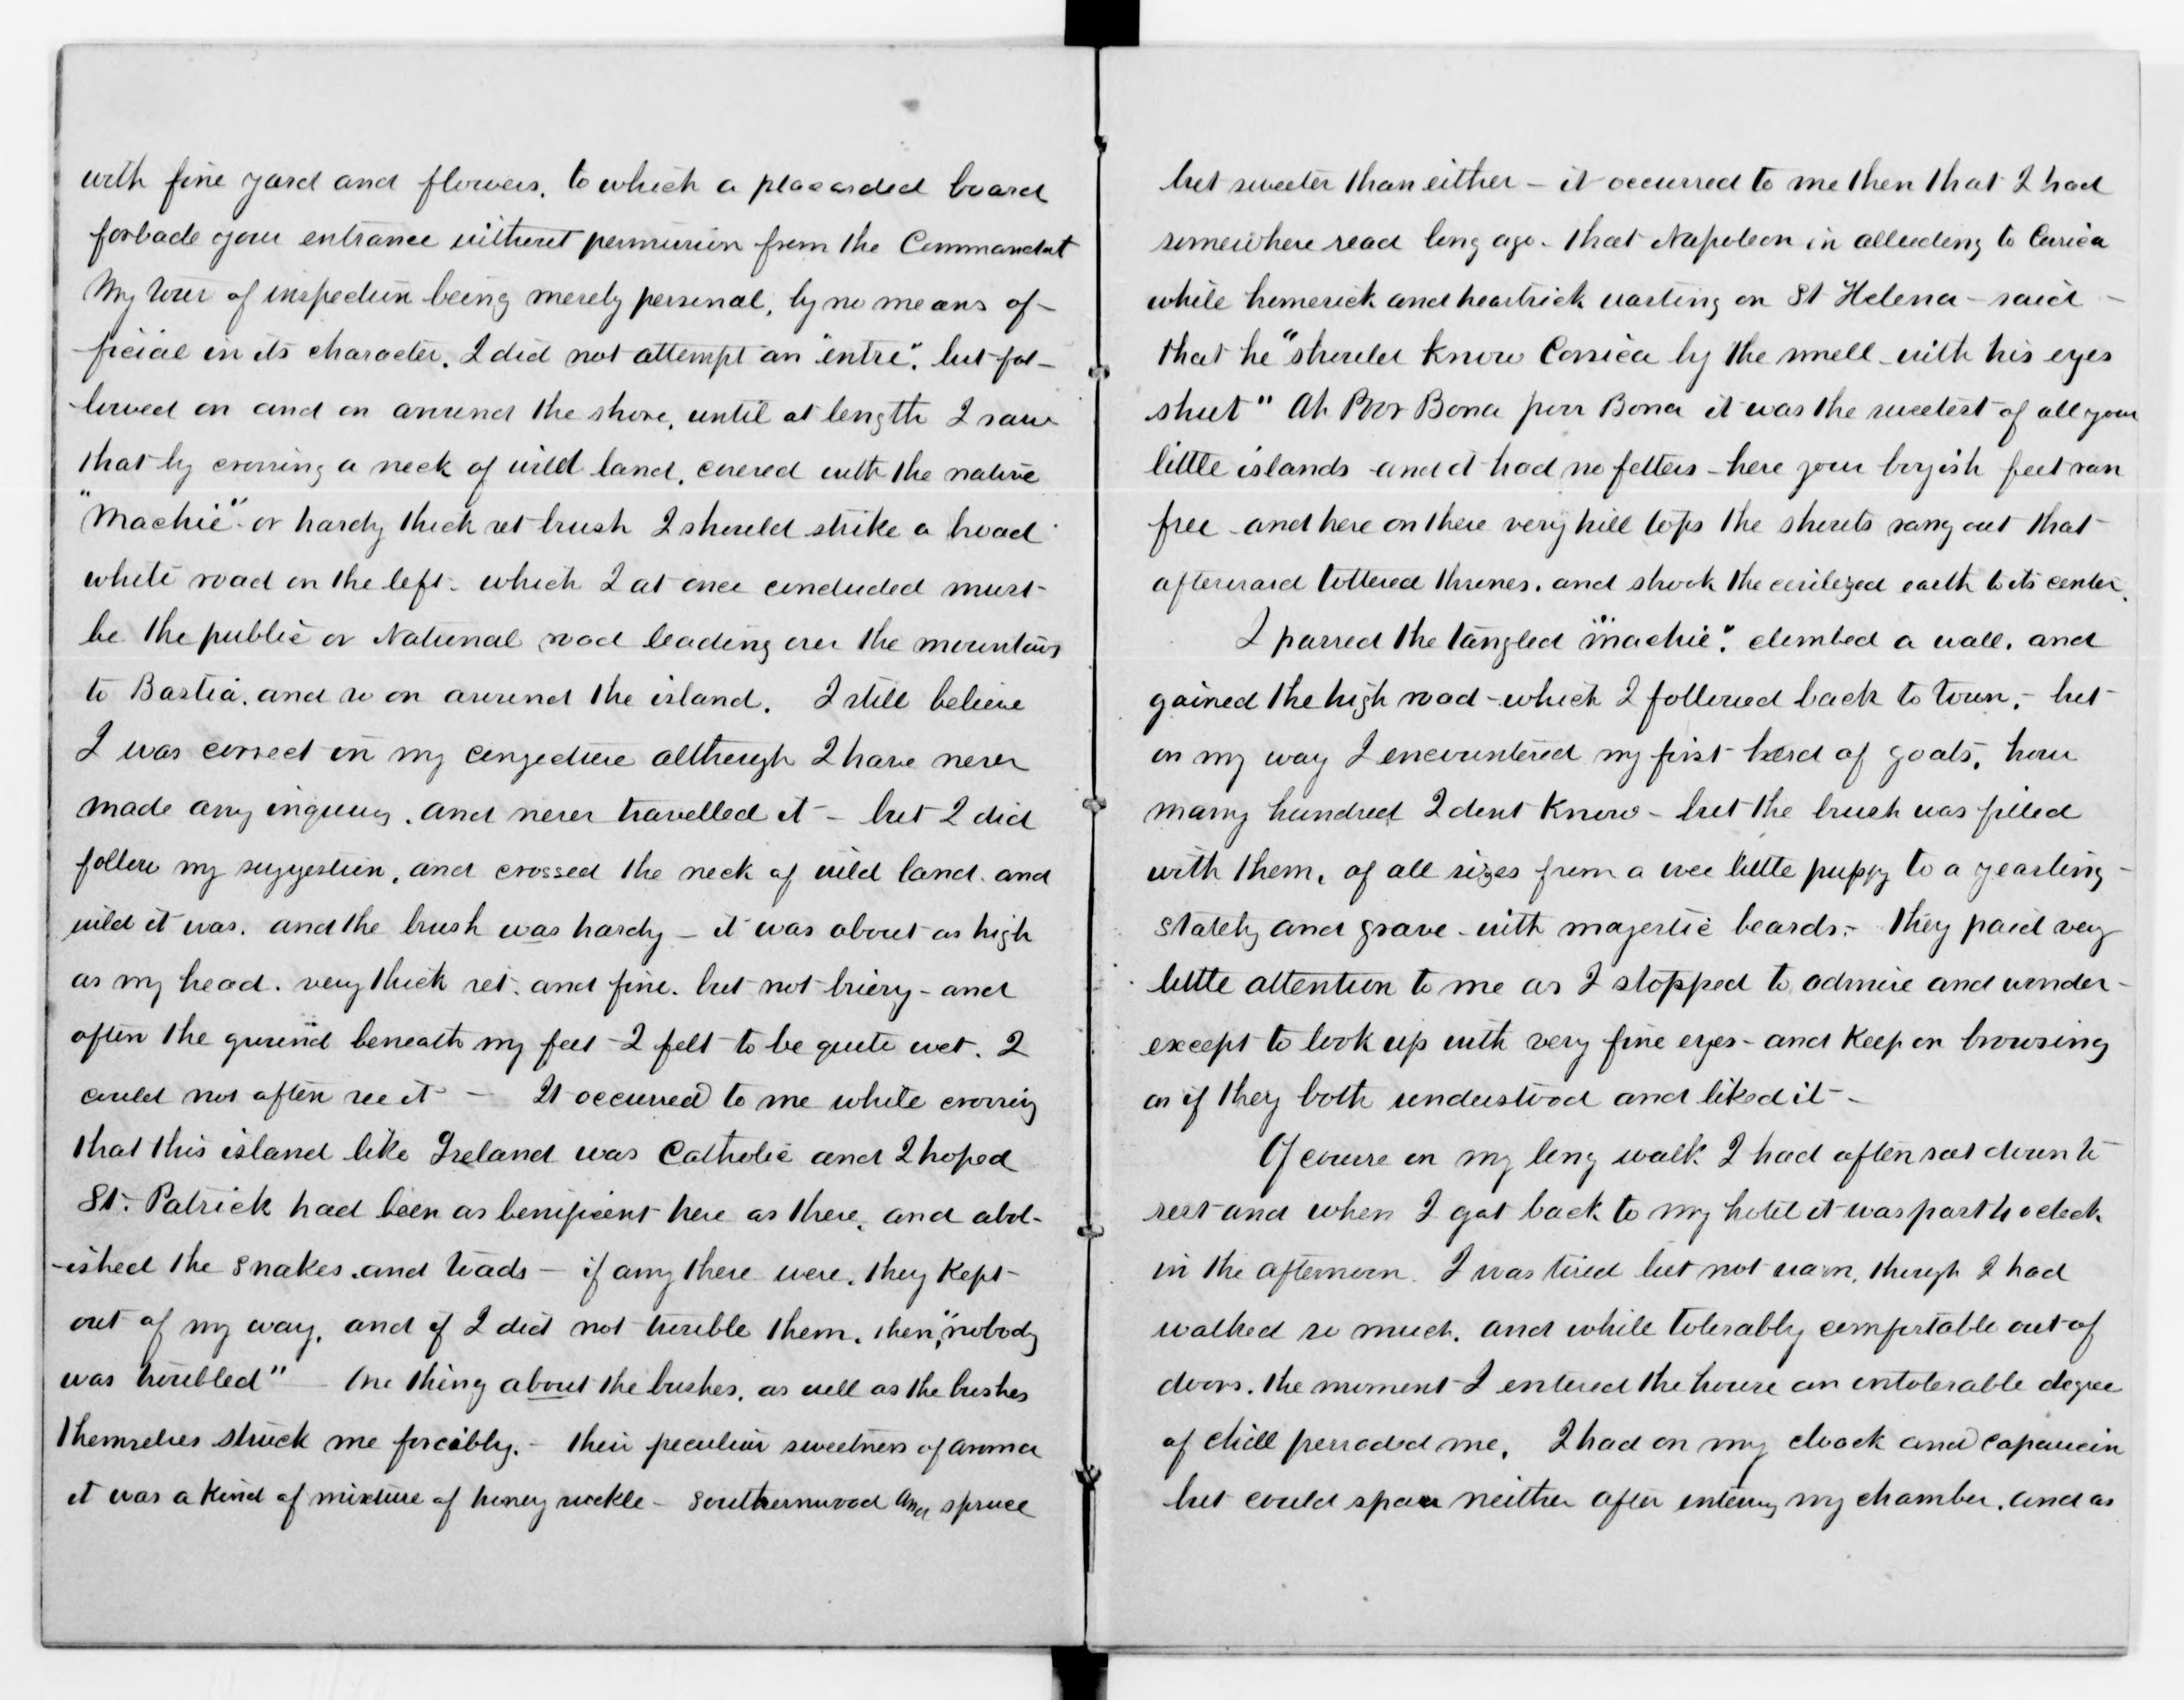 with fine yard and flowers. to which a placarded board
forbade your entrance without permission from the Commandat
My tour of inspection being merely personal, by no means of-
-ficial in its character. I did not attempt an "entre". but fol-
-lowed on and on around the shore, until at length I saw
that by crossing a neck of wild land, covered with the native
"Machie" or hardy thick set brush I should strike a broad
white road on the left - which I at once concluded must
be the public or National road leading over the mountains
to Bastia. and so on around the island. I still believe
I was correct in my conjecture although I have never
made any inquiry. and never travelled it - but I did
follow my suggestion, and crossed the neck of wild land. and
wild it was. and the brush was hardy - it was about as high
as my head. very thick set. and fine. but not briery - and
often the ground beneath my feet - I felt to be quite wet. I
could not often see it - It occurred to me while crossing
that this island like Ireland was Catholic and I hoped
St. Patrick had been as benificent here as there, and abol-
-ished the snakes and toads - if any there were, they kept
out of my way, and if I did not trouble them. then, "nobody
was troubled" - One thing about the bushes, as well as the bushes
themselves struck me forcibly. - their peculiar sweetness of aroma
it was a kind of mixture of honey suckle - southernwood and spruce
but sweeter than either - it occurred to me then that I had
somewhere read long ago - that Napoleon in alluding to Corsica
while homesick and heartsick wasting on St Helena - said -
that he "should know Corsica by the smell - with his eyes
shut" Ah Poor Bona poor Bona it was the sweetest of all your
little islands and it had no fetters - here your boyish feet ran
free - and here on these very hill tops the shouts rang out that
afterward tottered thrones. and shook the civilized earth to its center.
I passed the tangled "machie". climbed a wall. and
gained the high road - which I followed back to town. - but
on my way I encountered my first herd of goats, how
many hundred I dont know - but the brush was filled
with them, of all sizes from a wee little puppy to a yearling -
stately and grave - with majestic beards. - they paid very
little attention to me as I stopped to admire and wonder -
except to look up with very fine eyes - and keep on browsing
as if they both understood and liked it -
Of course on my long walk I had often sat down to
rest and when I got back to my hotel it was past 4 oclock
in the afternoon. I was tired but not warm, though I had
walked so much. and while tolerably comfortable out of
doors. the moment I entered the house an intolerable degree
of chill pervaded me. I had on my cloack and capaucin
but could spare neither after entering my chamber. and as